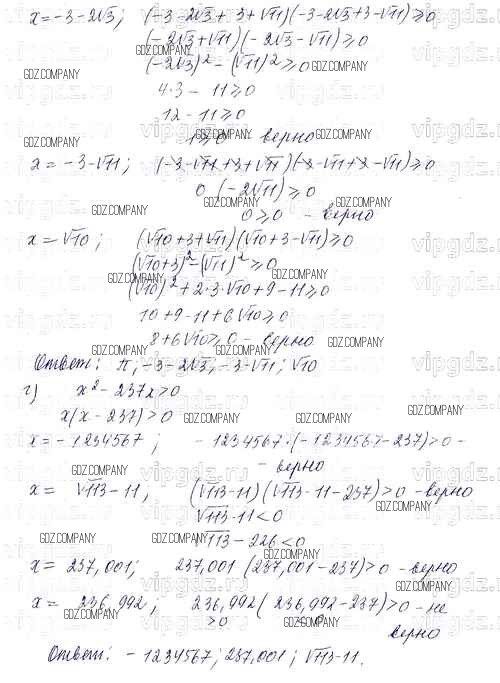 x=-3-2√3; (-3-2√3+3+√11)(-3-2√3+3-√11)≥0
(-2√3+√11)(-2√3-√11)≥0
(-2√3)²-(√11)²≥0
4·3-11≥0
12-11≥0
1≥0 - верно
x=-3-√11; (-3-√11+3+√11)(-3-√11+3-√11)≥0
0 (-2√11)≥0
0≥0 - верно
x=√10; (√10+3+√11)(√10+3-√11)≥0
(√10+3)²-(√11)²≥0
(√10)²+2·3·√10+9-11≥0
10+9-11+6√10≥0
8+6√10≥0 - верно
Ответ: π; -3-2√3; -3-√11; √10
г) x²-237x>0
x(x-237)>0
x=-1234567; -1234567·(-1234567-237)>0 -
- верно
x=√113-11; (√113-11)(√113-11-237)>0 - верно
√113-11<0
√113-226<0
x=237,001; 237,001(237,001-237)>0 - верно
x=236,992; 236,992(236,992-237)>0 - не
>0 <0
верно
Ответ: -1234567; 237,001; √113-11.